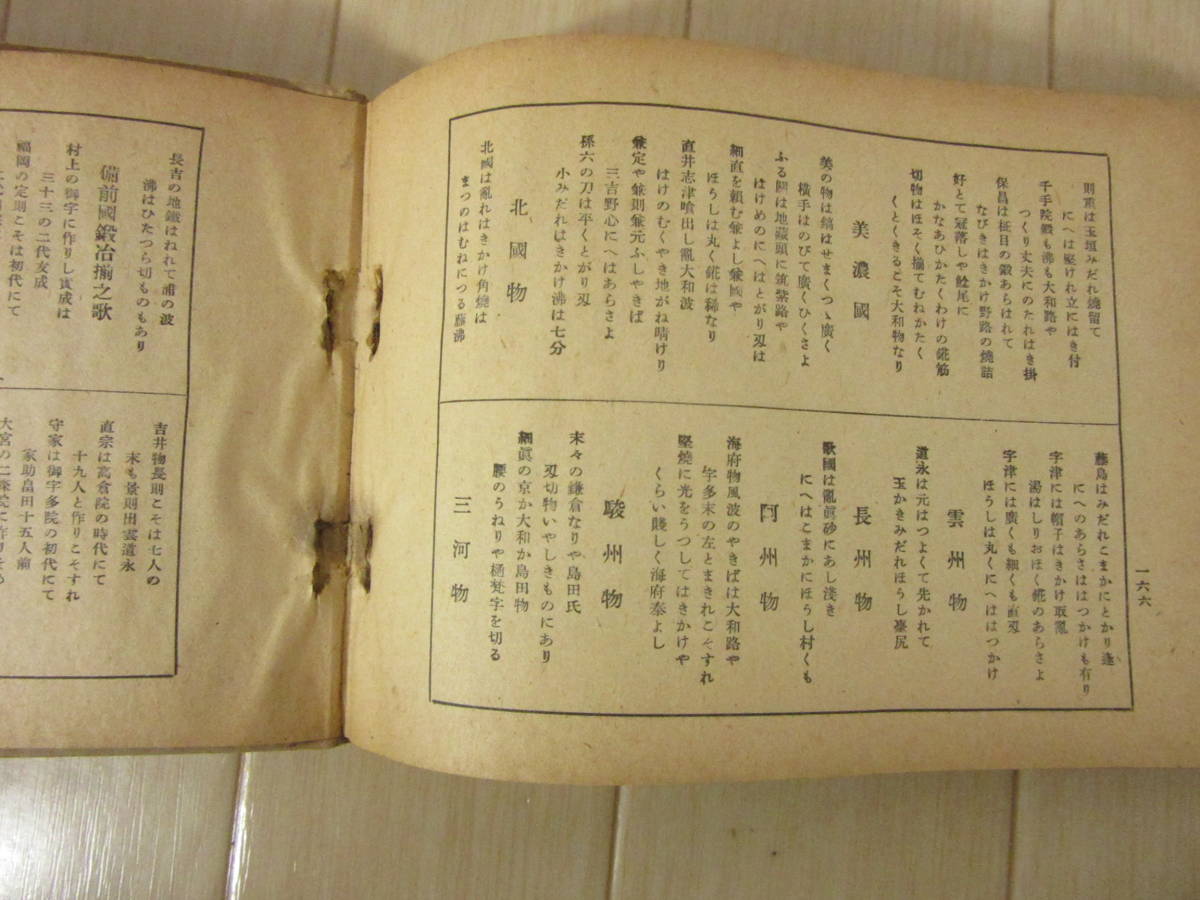 一六六
則重は玉垣みだれ燒留て
にへは堅けれ立にはき付
千手院鍛も沸も大和路や
つくり丈夫にのたれはき掛
保昌は柾目の鍛あらはれて
なびきはきかけ野路の燒詰
好とて冠落しや鯰尾に
かなあひかたくわけの匁筋
切物はほそく搦てむねかたく
くとくきるこそ大和物なり
美濃國
美の物は鎬はせまくつゝ廣く
横手はのびて廣くひくさよ
ふる關は地藏頭に筑紫路や
はけめのにへはとがり刄は
細直を頼む兼よし兼國や
ほうしは丸く匁は稀なり
直井志津喰出し亂大和波
はけのむくやき地がね晴けり
兼定や兼則兼元ふしやきば
三吉野心にへはあらさよ
孫六の刀は平くとがり刄
小みだれはきかけ沸は七分
北國物
北國は亂れはきかけ角燒は
まつのはむねにつる藤沸
藤島はみだれこまかにとかり逢
にへのあらさははつかけも有り
宇津には帽子はきかけ取亂
湯はしりおほく匁のあらさよ
宇津には廣くも細くも直刄
ほうしは丸くにへははつかけ
雲州物
道永は元はつよくて先かれて
玉かきみだれほうし臺尻
長州物
歌國は亂眞砂にあし淺き
にへはこまかにほうし村くも
阿州物
海府物風波のやきばは大和路や
宇多末の左とまきれこそすれ
堅燒に光をうつしてはきかけや
くらい賤しく海府泰よし
駿州物
末々の鎌倉なりや島田氏
刄切物いやしきものにあり
細眞の京か大和か島田物
腰のうねりや樋梵字を切る
三河物
長吉の地鐵はねれて浦の波
沸はひたつら切ものもあり
備前國鍛冶揃之歌
村上の御宇に作りし實成は
三十三の二代友成
福岡の定則こそは初代にて
吉井物長則こそは七人の
末も景則出雲道永
直宗は高倉院の時代にて
十九人と作りこそすれ
守家は御宇多院の初代にて
家助畠田十五人前